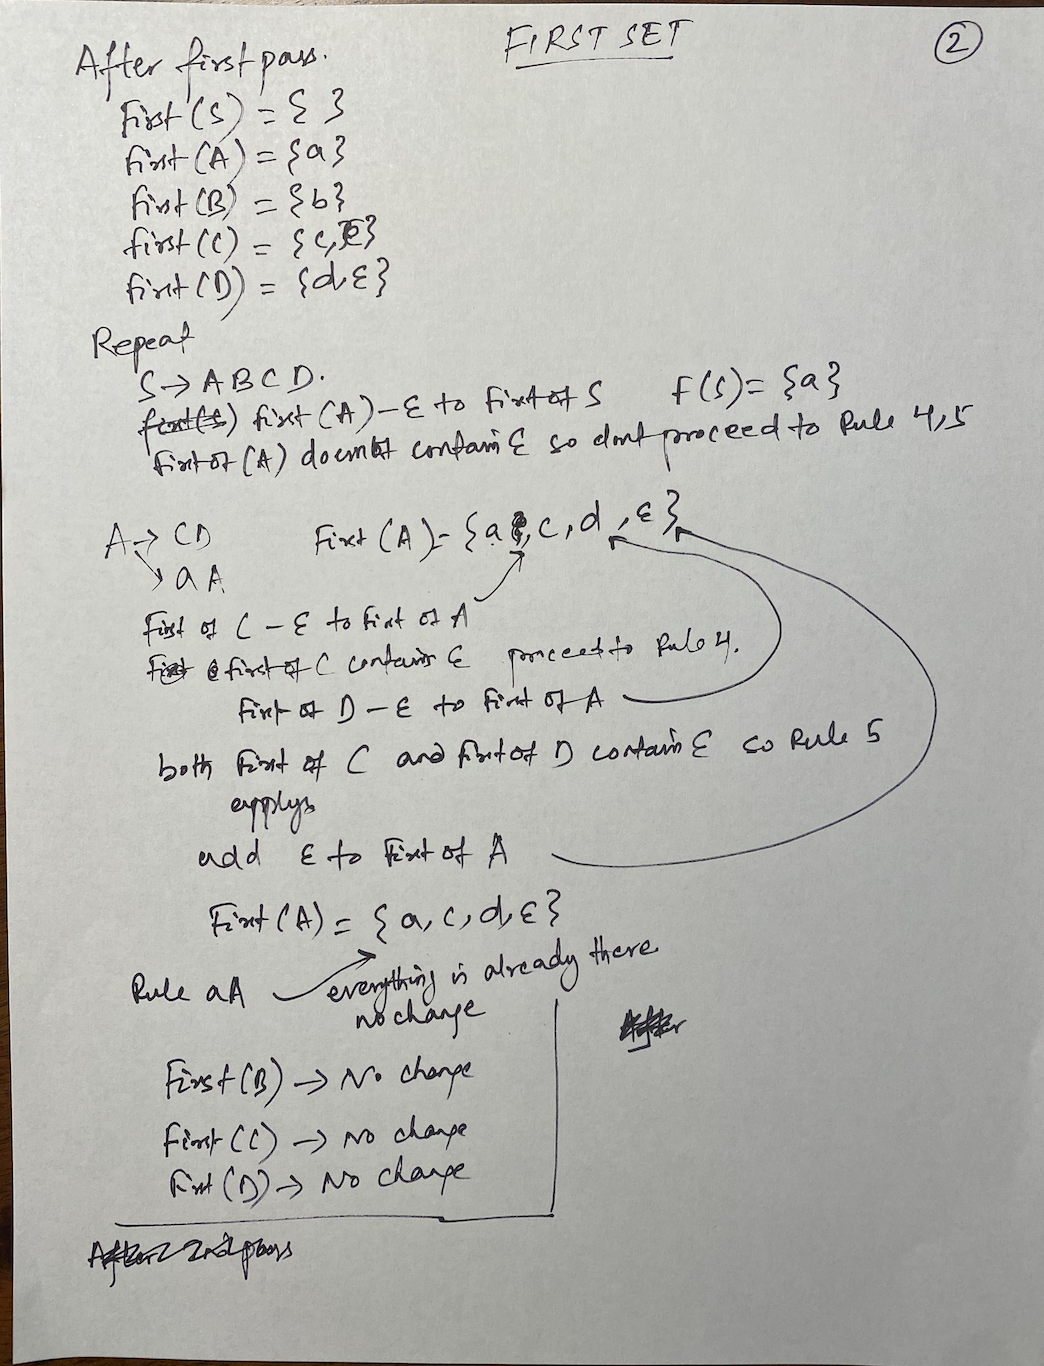 FIRST SET
2
After first pass.
First(S) = { }
First(A) = {a}
First(B) = {b}
First(C) = {c, ε}
First(D) = {d, ε}
Repeat
S → A B C D.
first(A) - ε to First of S F(S) = {a}
First of (A) doesn't contain ε so dont proceed to Rule 4,5
A → CD First(A) = {a, c, d, ε}
→ aA
First of C - ε to First of A
first of C contains ε proceed to Rule 4.
First of D - ε to First of A
both First of C and First of D contain ε so Rule 5
applys
add ε to First of A
First(A) = {a, c, d, ε}
Rule aA everything is already there
no change
First(B) → No change
First(C) → No change
First(D) → No change